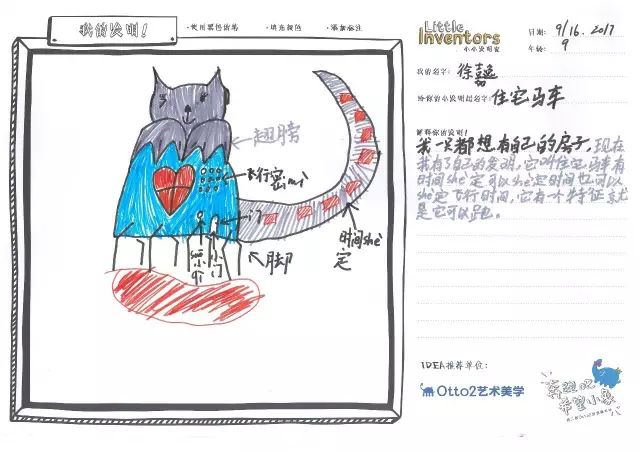 我的发明!
·使用黑色的笔 ·填充颜色 ·添加标注
Little
Inventors
小小发明家
日期: 9/16.2017
年龄: 9
我的名字:
给你的小发明起名字: 住宅马车
解释你的发明!
我一只都想有自己的房子,现在
我有了自己的发明,它叫住宅马车有
时间she定可以she定时间也可以
she定飞行时间,它有一个特征就
是它可以跑。
翅膀
飞行密mǎ
门
时间she
定
脚
小门
IDEA推荐单位:
Otto2艺术美学
希望小象